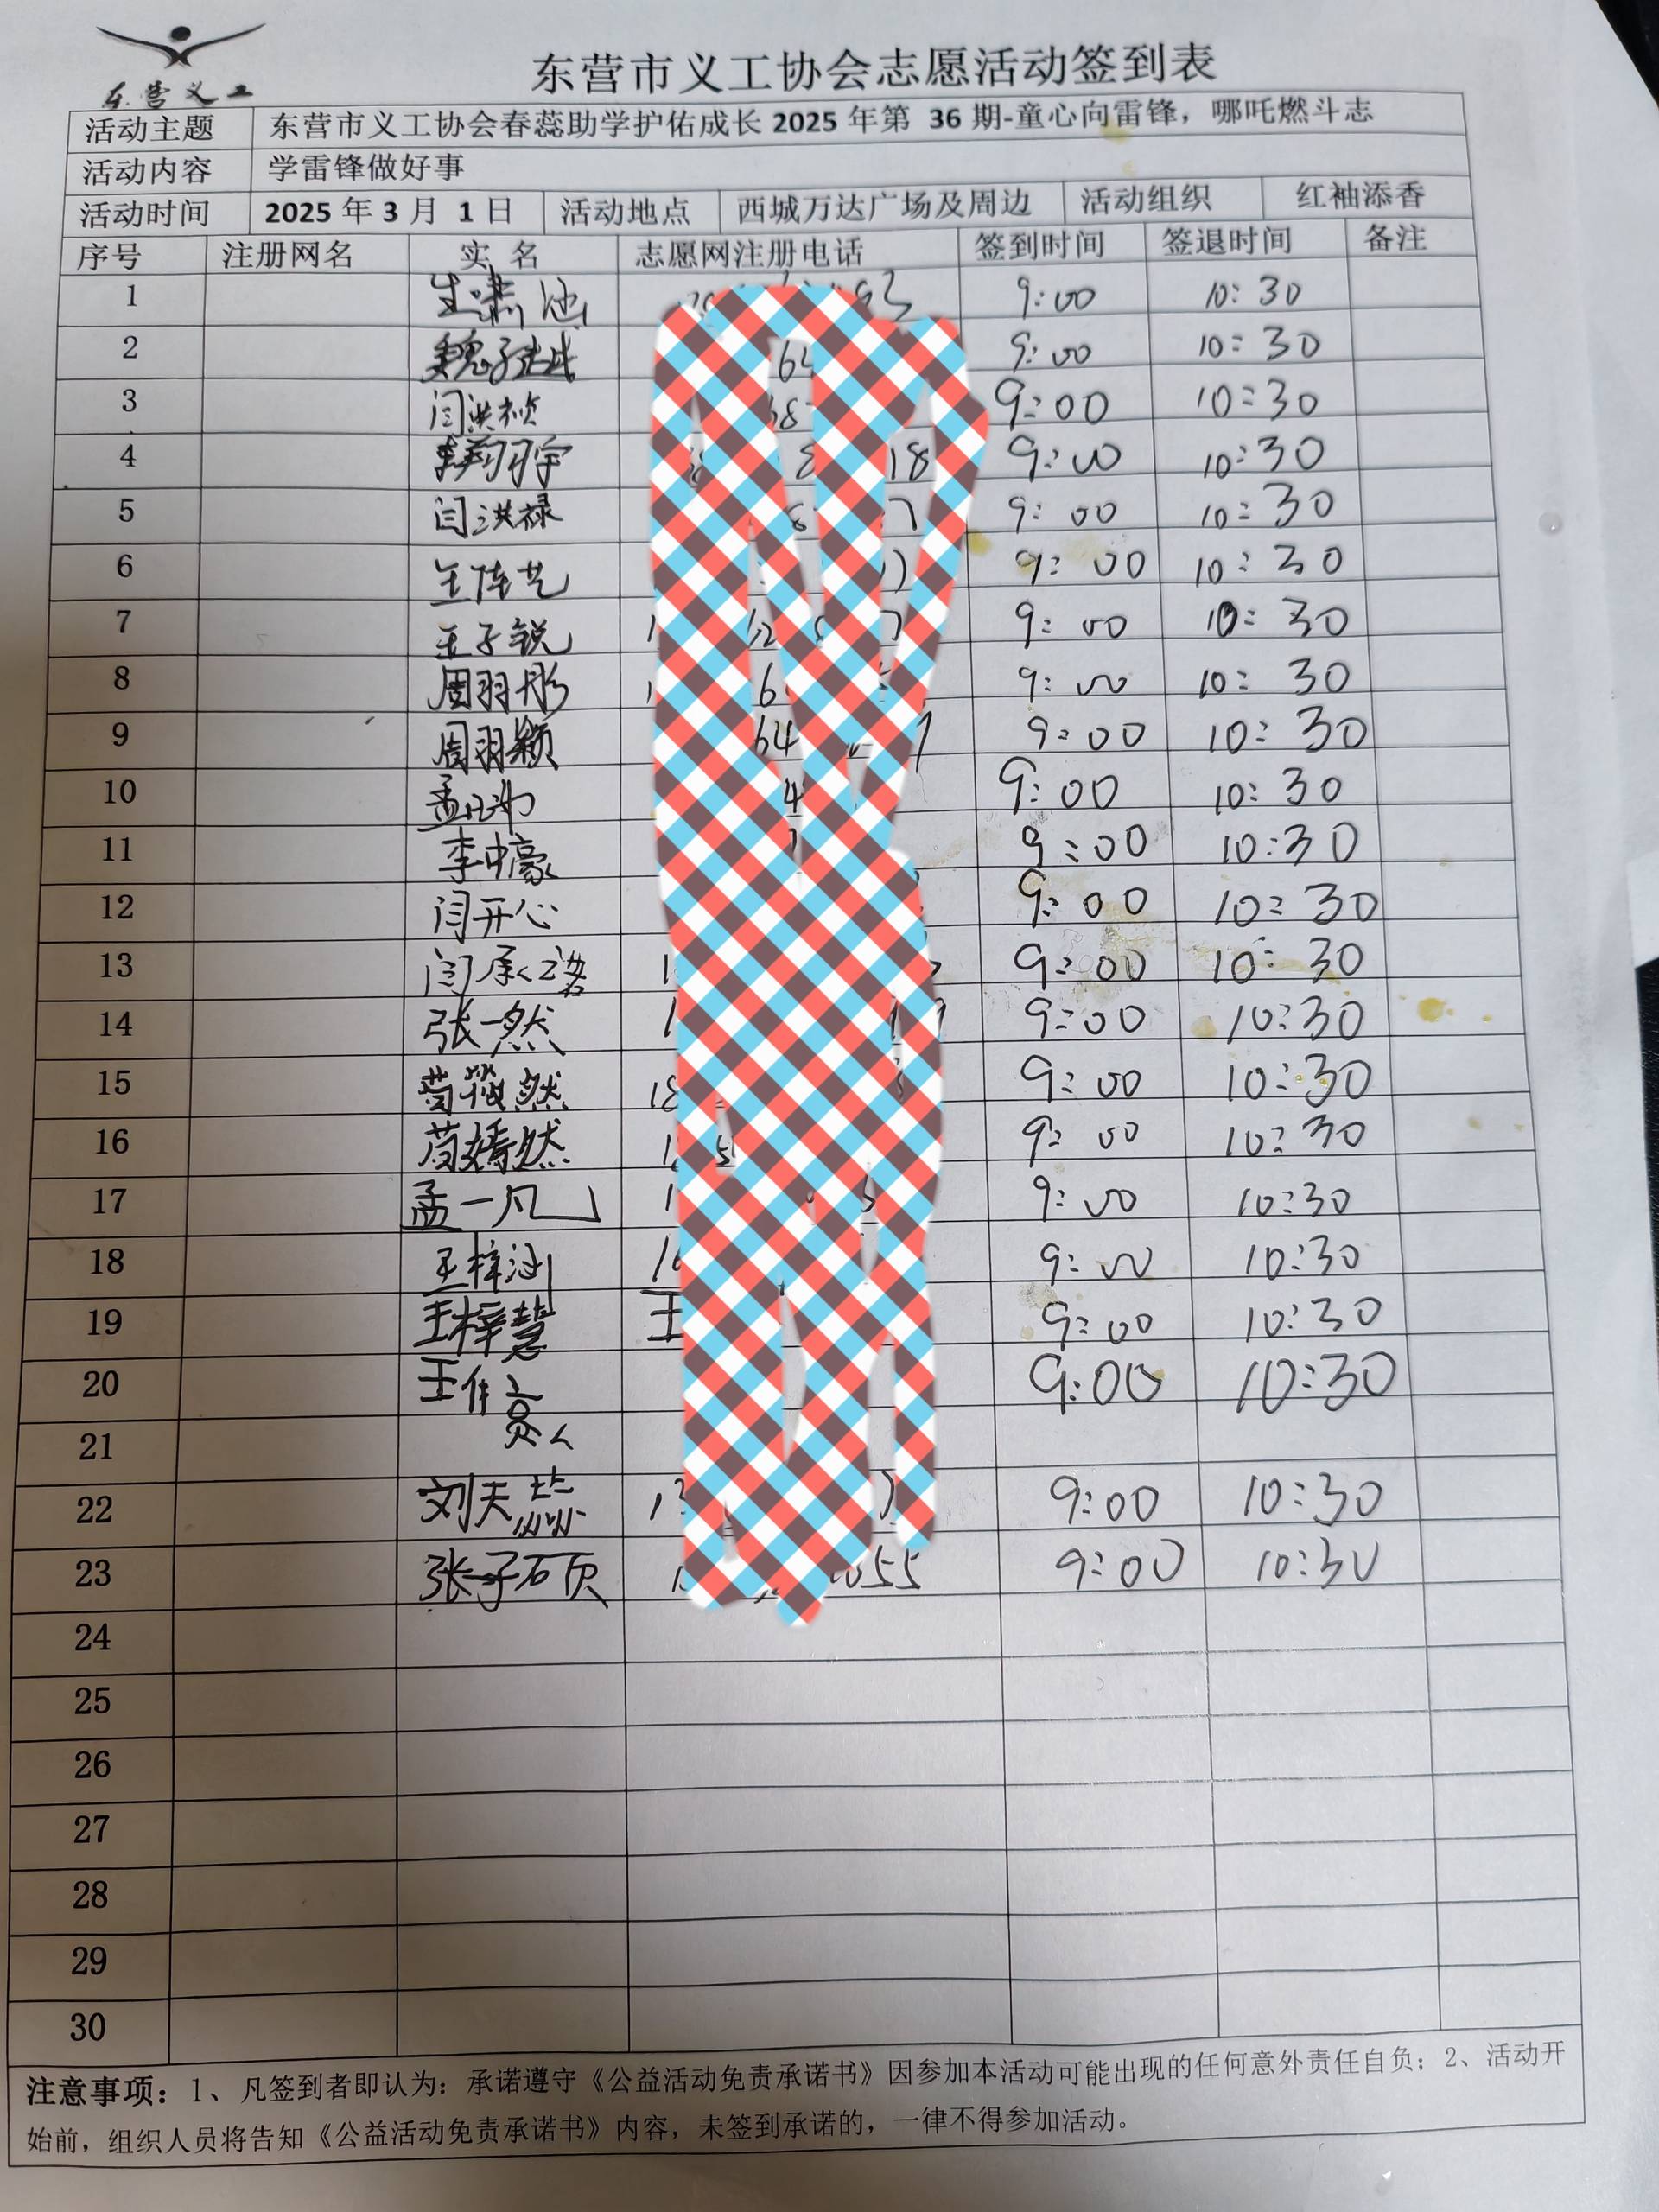 东营义工
东营市义工协会志愿活动签到表
活动主题 东营市义工协会春蕊助学护佑成长 2025 年第 36 期-童心向雷锋，哪吒燃斗志
活动内容 学雷锋做好事
活动时间 2025 年 3 月 1 日 活动地点 西城万达广场及周边 活动组织 红袖添香
序号 注册网名 实 名 志愿网注册电话 签到时间 签退时间 备注
1 9:00 10:30
2 魏子 64 9:00 10:30
3 闫洪祯 9:00 10:30
4 李翔宇 18 9:00 10:30
5 闫洪禄 9:00 10:30
6 王陈艺 9:00 10:30
7 王子锐 9:00 10:30
8 周羽彤 6 9:00 10:30
9 周羽颖 64 9:00 10:30
10 孟 4 9:00 10:30
11 李中豪 9:00 10:30
12 闫开心 9:00 10:30
13 闫承诺 9:00 10:30
14 张一然 1 9:00 10:30
15 苟筱然 18 9:00 10:30
16 苟嫣然 9:00 10:30
17 孟一凡 1 9:00 10:30
18 王梓涵 9:00 10:30
19 王梓慧 王 9:00 10:30
20 王倌亮 9:00 10:30
21
22 刘天蕊 13 9:00 10:30
23 张子硕 1 55 9:00 10:30
24
25
26
27
28
29
30
注意事项：1、凡签到者即认为：承诺遵守《公益活动免责承诺书》因参加本活动可能出现的任何意外责任自负；2、活动开
始前，组织人员将告知《公益活动免责承诺书》内容，未签到承诺的，一律不得参加活动。